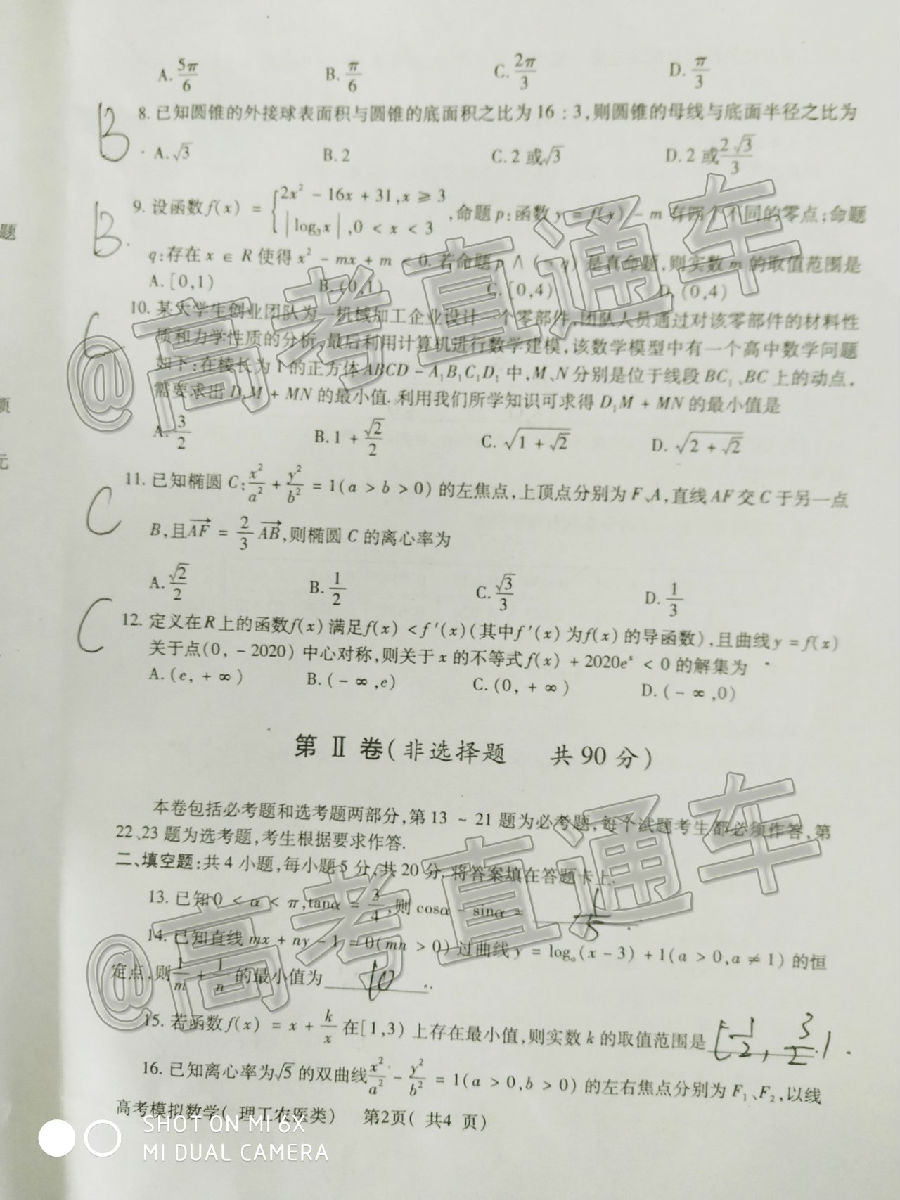 A. 5π/6 B. π/6 C. 2π/3 D. π/3
B
8. 已知圆锥的外接球表面积与圆锥的底面积之比为 16 : 3,则圆锥的母线与底面半径之比为
A. √3 B. 2 C. 2 或√3 D. 2 或 2√3/3
B.
9. 设函数 f(x) = { 2x² - 16x + 31, x ≥ 3
|log₃x|, 0 < x < 3 ,命题 p:函数 y = f(x) - m 有两个不同的零点;命题
q:存在 x ∈ R 使得 x² - mx + m < 0. 若命题 p ∧ (¬q) 是真命题,则实数 m 的取值范围是
A. [0,1) B. (0,1) C. [0,4) D. (0,4)
C
10. 某大学生创业团队为一机械加工企业设计一个零部件,团队人员通过对该零部件的材料性
质和力学性质的分析,最后利用计算机进行数学建模,该数学模型中有一个高中数学问题
如下:在棱长为 1 的正方体 ABCD - A₁B₁C₁D₁ 中,M、N 分别是位于线段 BC₁、BC 上的动点,
需要求出 D₁M + MN 的最小值. 利用我们所学知识可求得 D₁M + MN 的最小值是
A. 3/2 B. 1 + √2/2 C. √(1 + √2) D. √(2 + √2)
C
11. 已知椭圆 C: x²/a² + y²/b² = 1(a > b > 0) 的左焦点,上顶点分别为 F、A,直线 AF 交 C 于另一点
B,且 AF = 2/3 AB,则椭圆 C 的离心率为
A. √2/2 B. 1/2 C. √3/3 D. 1/3
C
12. 定义在 R 上的函数 f(x) 满足 f(x) < f′(x) (其中 f′(x) 为 f(x) 的导函数),且曲线 y = f(x)
关于点(0, - 2020) 中心对称,则关于 x 的不等式 f(x) + 2020eˣ < 0 的解集为
A. (e, + ∞) B. ( - ∞ ,e) C. (0, + ∞) D. ( - ∞ ,0)
第 Ⅱ 卷(非选择题 共 90 分)
本卷包括必考题和选考题两部分,第 13 ~ 21 题为必考题,每个试题考生都必须作答,第
22、23 题为选考题,考生根据要求作答.
二、填空题:共 4 小题,每小题 5 分,共 20 分, 将答案填在答题卡上.
13. 已知 0 < α < π, tanα = 3/4,则 cosα - sinα = 1/5
14. 已知直线 mx + ny - 1 = 0(mn > 0) 过曲线 y = logₐ(x - 3) + 1(a > 0,a ≠ 1) 的恒
定点,则 1/m + 1/n 的最小值为 10
15. 若函数 f(x) = x + k/x 在 [1,3) 上存在最小值,则实数 k 的取值范围是 [1/2, 3/2]
16. 已知离心率为 √5 的双曲线 x²/a² - y²/b² = 1(a > 0,b > 0) 的左右焦点分别为 F₁、F₂,以线
高考模拟数学( 理工农医类) 第2页( 共4 页)
@高考直通车
@高考直通车
SHOT ON MI 6X
MI DUAL CAMERA
题
项
元